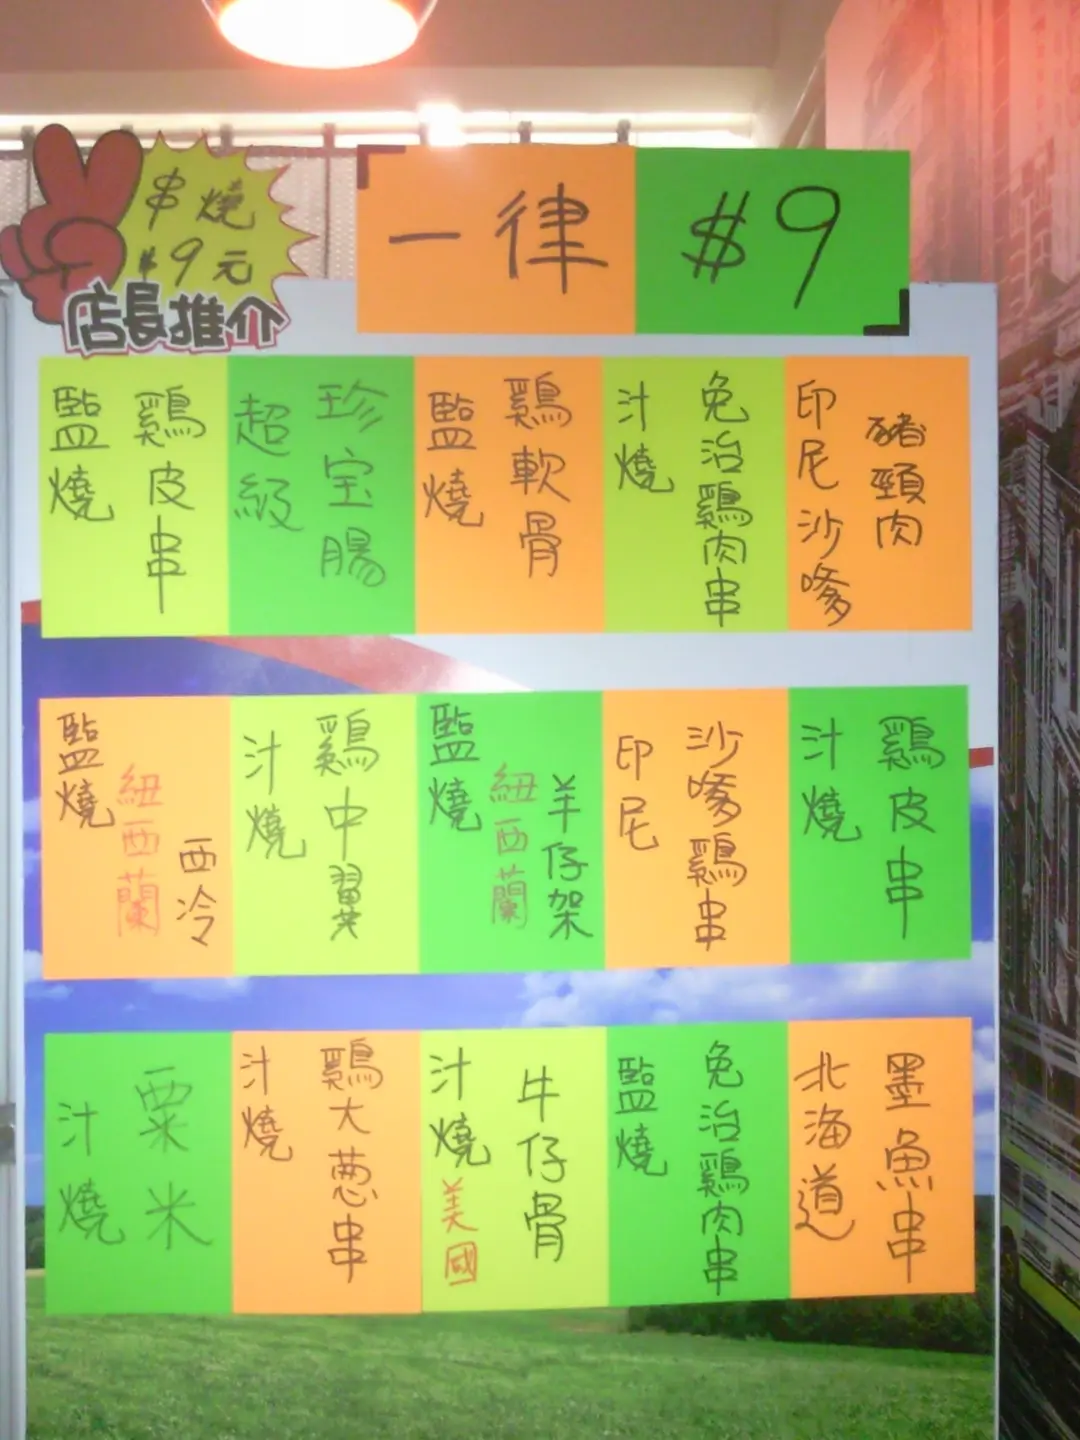 串燒
$9元
店長推介
一律 $9
監燒 鷄皮串
超級 珍宝腸
監燒 鷄軟骨
汁燒 免治鷄肉串
印尼沙嗲 豬頸肉
監燒 紐西蘭 西冷
汁燒 鷄中翼
監燒 紐西蘭 羊仔架
印尼 沙嗲鷄串
汁燒 鷄皮串
汁燒 粟米
汁燒 鷄大葱串
汁燒 美國 牛仔骨
監燒 免治鷄肉串
北海道 墨魚串